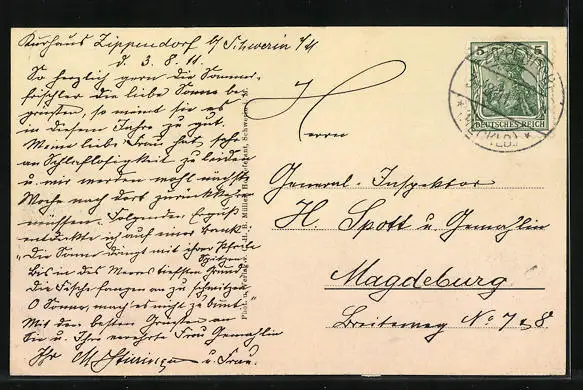 Kurhaus Zippendorf b/ Schwerin i/M
d. 3. 8. 11.
So herzlich gern die Sommer-
frischler die liebe Sonne be-
grüssten, so meint sie es
in diesem Jahre zu gut.
Meine liebe Frau hat sehr
an Schlaflosigkeit zu leiden
u. wir werden wohl nächste
Woche nach dort zurückkehren
müssen. Folgenden Erguß
entdeckte ich auf einer Bank
"Die Sonne dringt mit ihrer Pfeile
Spitzen
Bis in des Meeres tiefsten Grund
Die Fische fangen an zu schwitzen
O Sonne, mach' es nicht zu bunt."
Mit den besten Grüssen an
Sie u. Ihre verehrte Frau Gemahlin
Ihr M. u. Frau.
H. B. Müller, Schwerin i. M.
5 5
DEUTSCHES REICH
ZIPPENDORF
(MECKLB)
Herrn
General-Inspektor
H. Spott u Gemahlin
Magdeburg
Breiteweg No 7 & 8